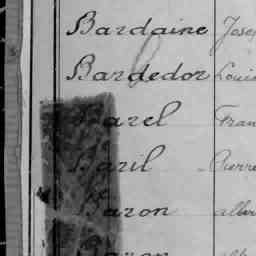 Bardaine Jose
Bardedor Loui
Barel Fran
Baril Pierre
Baron Alber
Baron